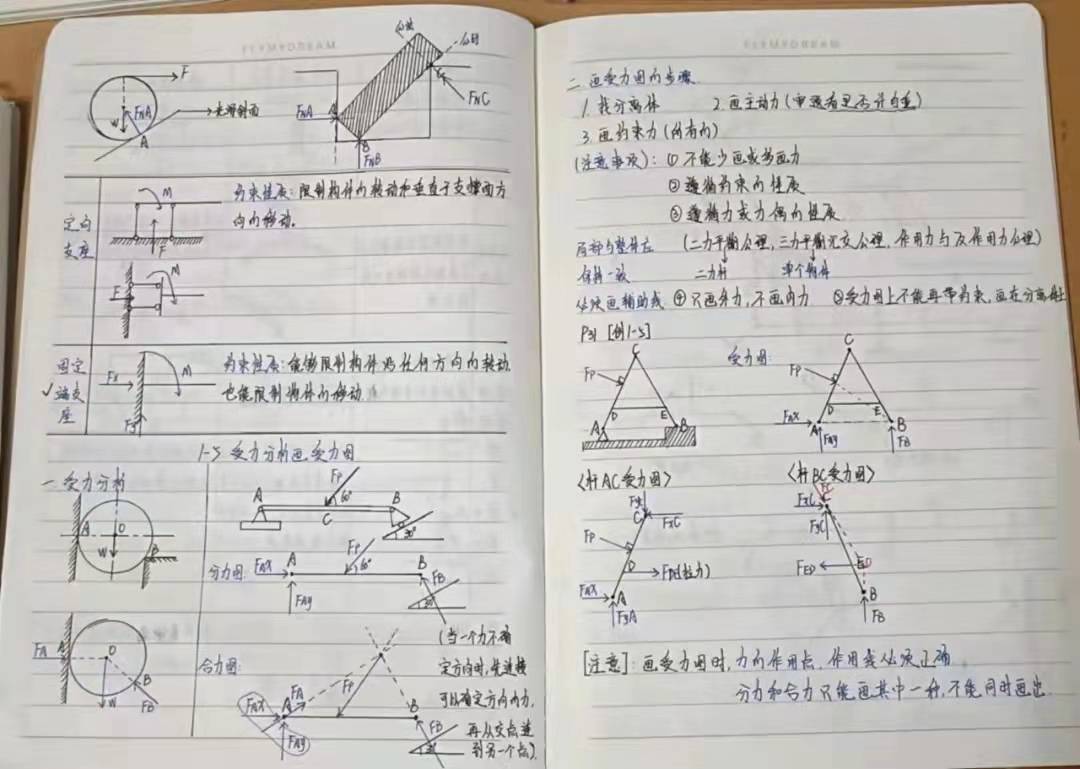 F
FNA
W
A
光滑斜面
公法
公切
FNA
A
C
FNC
B
FNB
定向
支座
M
F
约束性质：限制构件的转动和垂直于支撑面方
向的移动。
M
F
固定
端支
座
Fx
M
Fy
约束性质：能够限制构件沿任何方向的转动
也能限制构件的移动.
1-5 受力分析画受力图
一.受力分析
A
O
W
B
A
C
B
FP
60°
30°
分力图:
FAX
A
FAy
FP
60°
B
FB
30°
FA
A
O
W
B
FB
合力图:
FAX
A
FA
FAy
FP
B
FB
30°
(当一个力不确
定方向时,先连接
可以确定方向的力,
再从交点连
到另一个点).
二.画受力图的步骤
1.找分离体 2.画主动力(审题看是否计自重)
3.画约束力(所有的)
(注意事项): ①不能少画或多画力
②遵循约束的性质
③遵循力或力偶的性质
局部与整体应 (二力平衡公理,三力平衡汇交公理,作用力与反作用力公理)
保持一致 二力杆 单个物体
必须画辅助线 ④只画外力,不画内力 ⑤受力图上不能再带约束,画在分离体上
P31 [例1-5]
受力图:
C
FP
D
E
A
B
C
FP
D
E
FAX
A
FAy
B
FB
<杆AC受力图> <杆BC受力图>
C
FXC
FP
D
FDE(拉力)
FAX
A
FyA
FC
FXC
C
FyC
FED
E
D
B
FB
[注意]: 画受力图时,力的作用点,作用线必须正确
分力和合力只能画其中一种,不能同时画出.